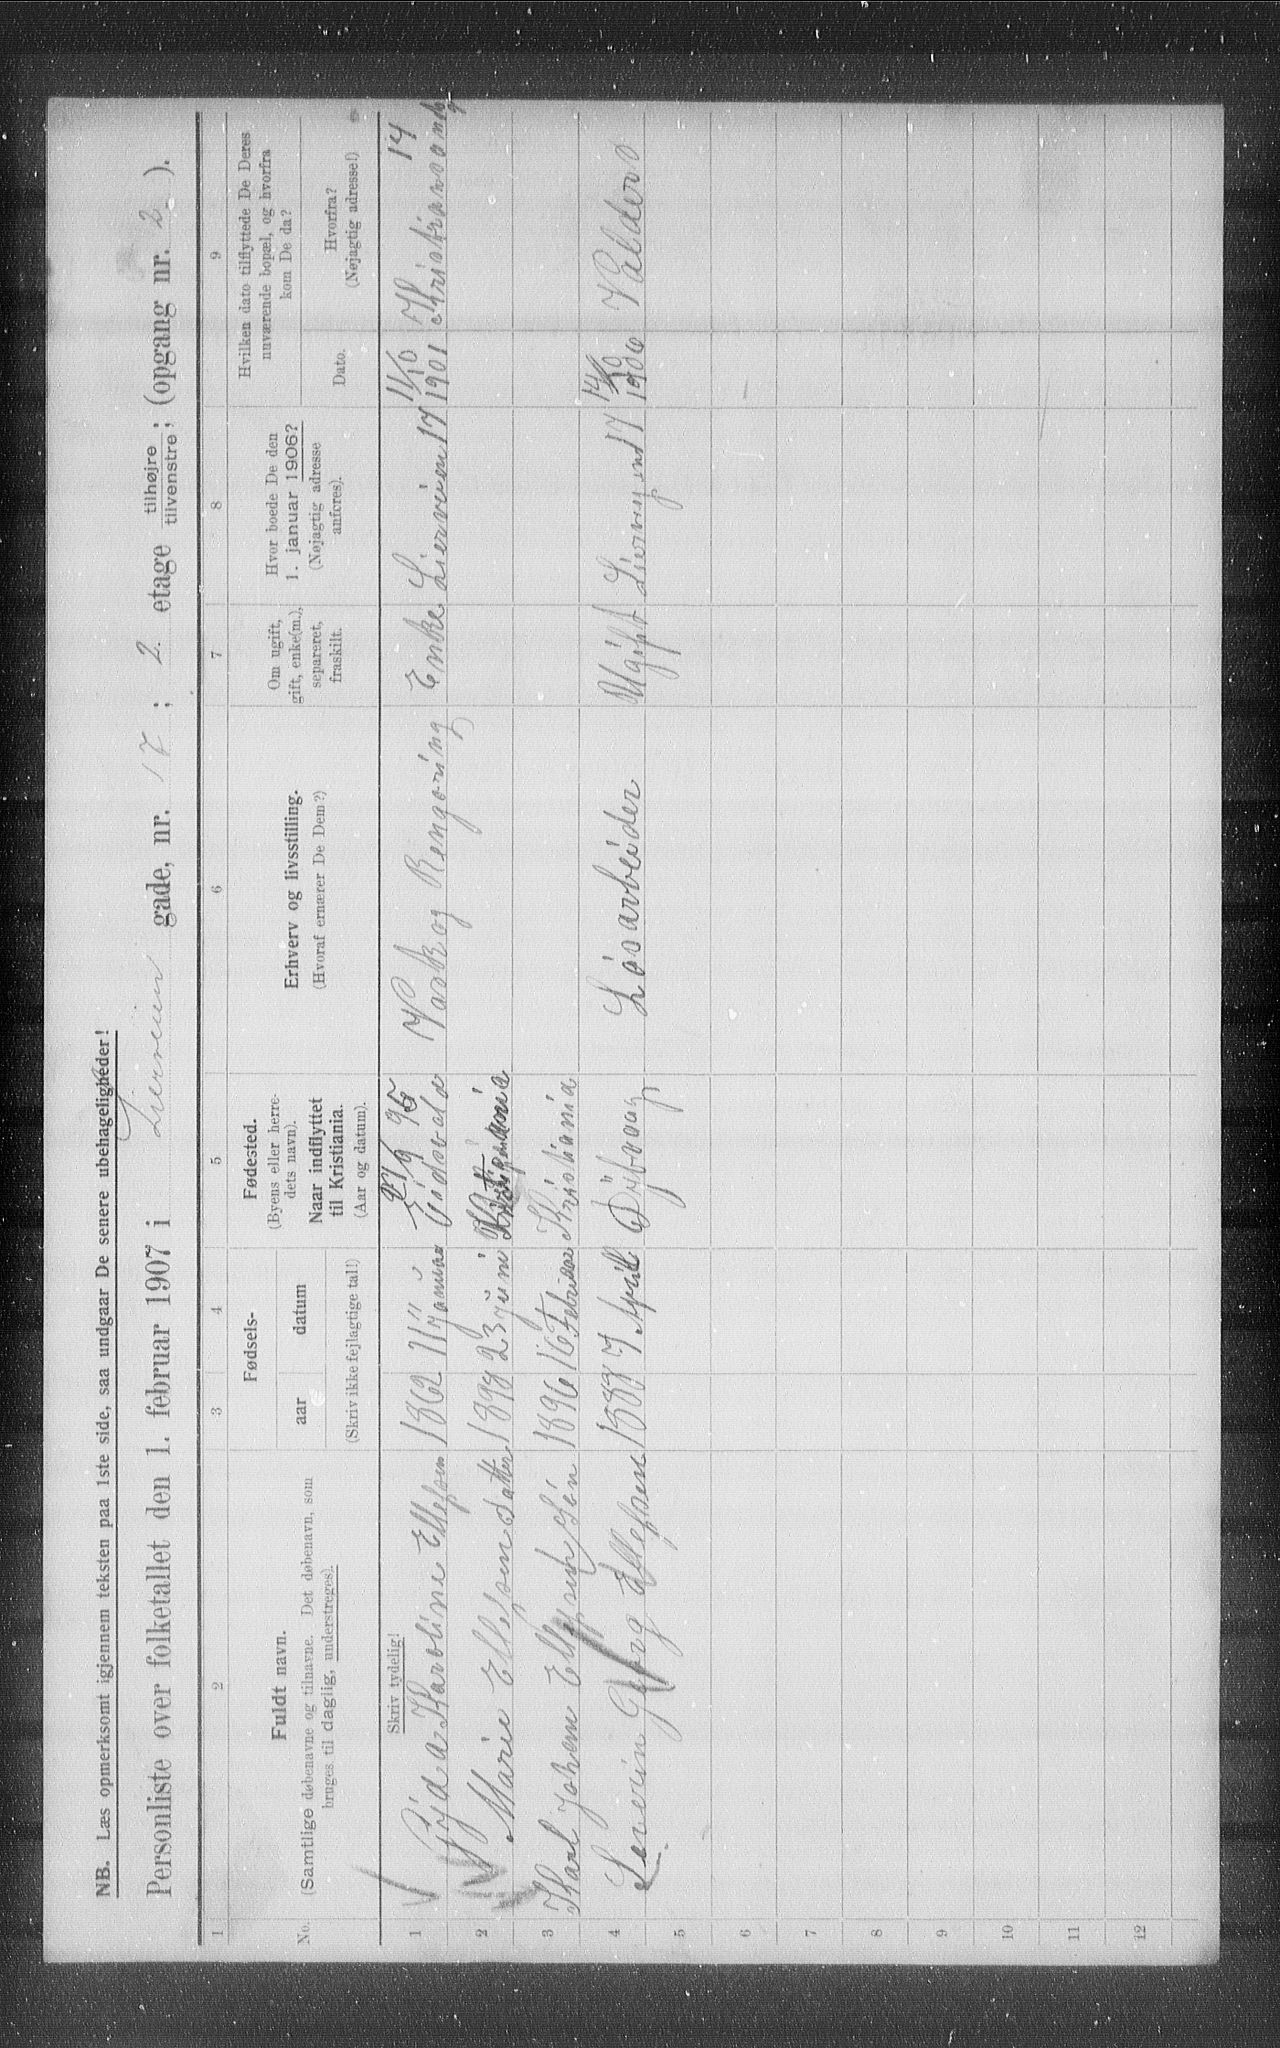 NB. Læs opmerksomt igjennem teksten paa 1ste side, saa undgaar De senere ubehageligheder!
Personliste over folketallet den 1. februar 1907 i Lierveien gade, nr. 17 ; 2. etage tilhøjre tilvenstre ; (opgang nr. 2 ).
1 2 3 4 5 6 7 8 9
No.
Fuldt navn.
(Samtlige døbenavne og tilnavne. Det døbenavn, som
bruges til daglig, understreges).
Skriv tydelig!
Fødsels-
aar datum
(Skriv ikke fejlagtige tal!)
Fødested.
(Byens eller herre-
dets navn).
Naar indflyttet
til Kristiania.
(Aar og datum).
Erhverv og livsstilling.
(Hvoraf ernærer De Dem?)
Om ugift,
gift, enke(m.),
separeret,
fraskilt.
Hvor boede De den
1. januar 1906?
(Nøjagtig adresse
anføres).
Hvilken dato tilflyttede De Deres
nuværende bopæl, og hvorfra
kom De da?
Dato.
Hvorfra?
(Nøjagtig adresse!)
1 Karoline Ellefsen 1862 11 Januar Eidsvold Vask og Rengøring Enke Lierveien 17 11/10 1901 14
2 Marie Ellefsen datter 1898 23 juni Kristiania
3 Karl Johan Ellefsen Søn 1896 16 Februar Kristiania
4 Severin Georg Ellefsen 1888 7 April Dybvaag Løsarbeider Ugift 17 14/10 1906 Valders
5
6
7
8
9
10
11
12